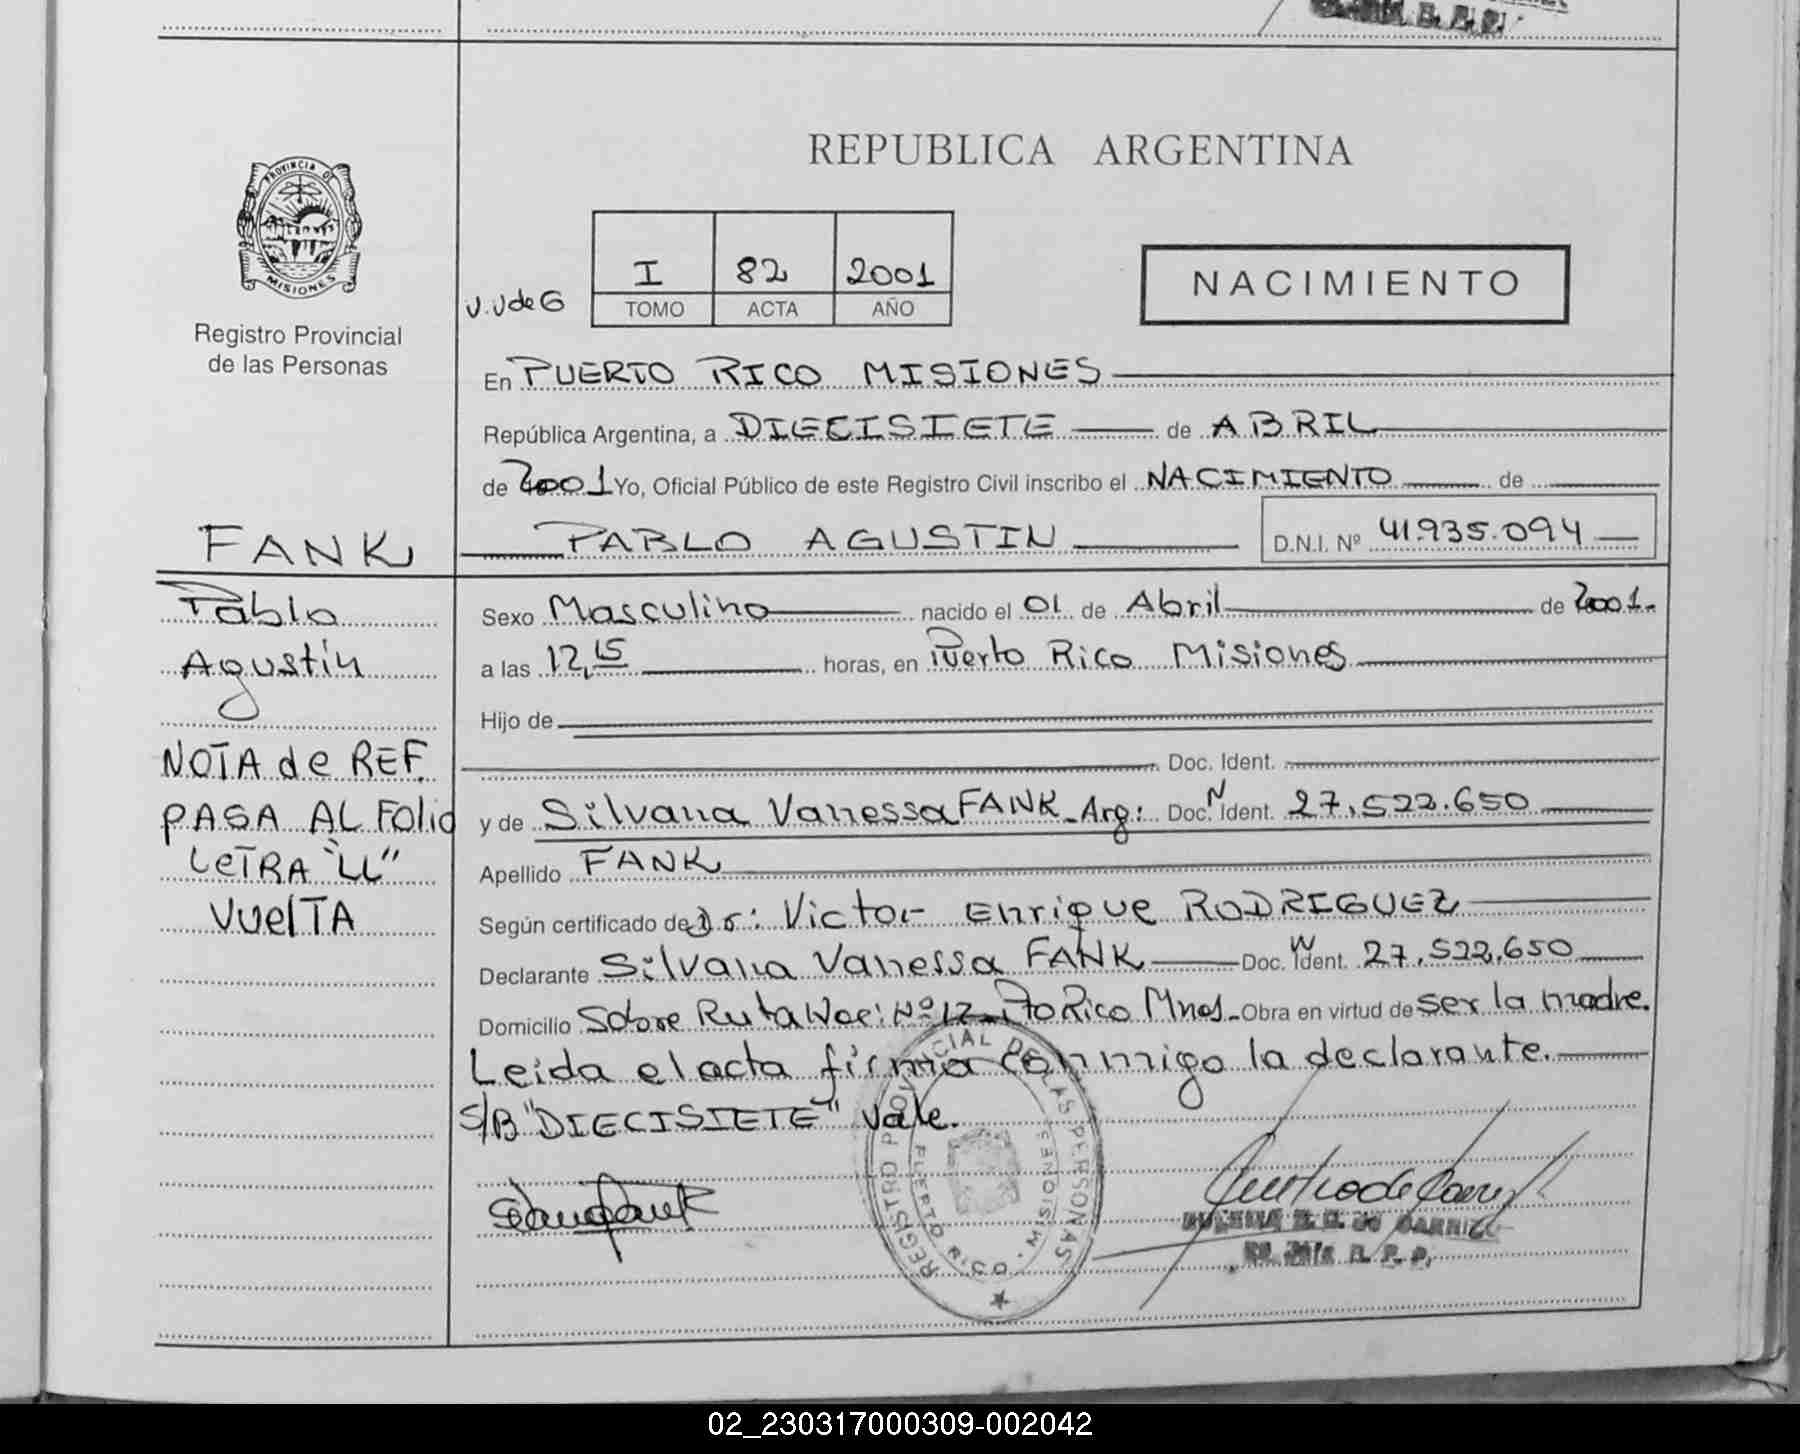 PROVINCIA DE
MISIONES
Registro Provincial
de las Personas
REPUBLICA ARGENTINA
I 82 2001
TOMO ACTA AÑO
NACIMIENTO
En PUERTO RICO MISIONES
República Argentina, a DIECISIETE de ABRIL
de 2001 Yo, Oficial Público de este Registro Civil inscribo el NACIMIENTO de
FANK
PABLO AGUSTIN D.N.I. Nº 41.935.094
Pablo
Agustín
NOTA de REF.
PASA AL FOLIO
LETRA "LL"
VUELTA
Sexo Masculino nacido el 01 de Abril de 2001.
a las 12,15 horas, en Puerto Rico Misiones
Hijo de
Doc. Ident.
y de Silvana Vanessa FANK Arg: Doc. N Ident. 27.522.650
Apellido FANK
Según certificado de Dr: Victor Enrique RODRIGUEZ
Declarante Silvana Vanessa FANK Doc. N Ident. 27.522.650
Domicilio Sobre Ruta Nac: Nº 12 Pto Rico Mnes. Obra en virtud de ser la madre.
Leida el acta firma conmigo la declarante.
S/B "DIECISIETE" Vale.
REGISTRO PROVINCIAL DE LAS PERSONAS
PUERTO RICO - MISIONES
02_230317000309-002042